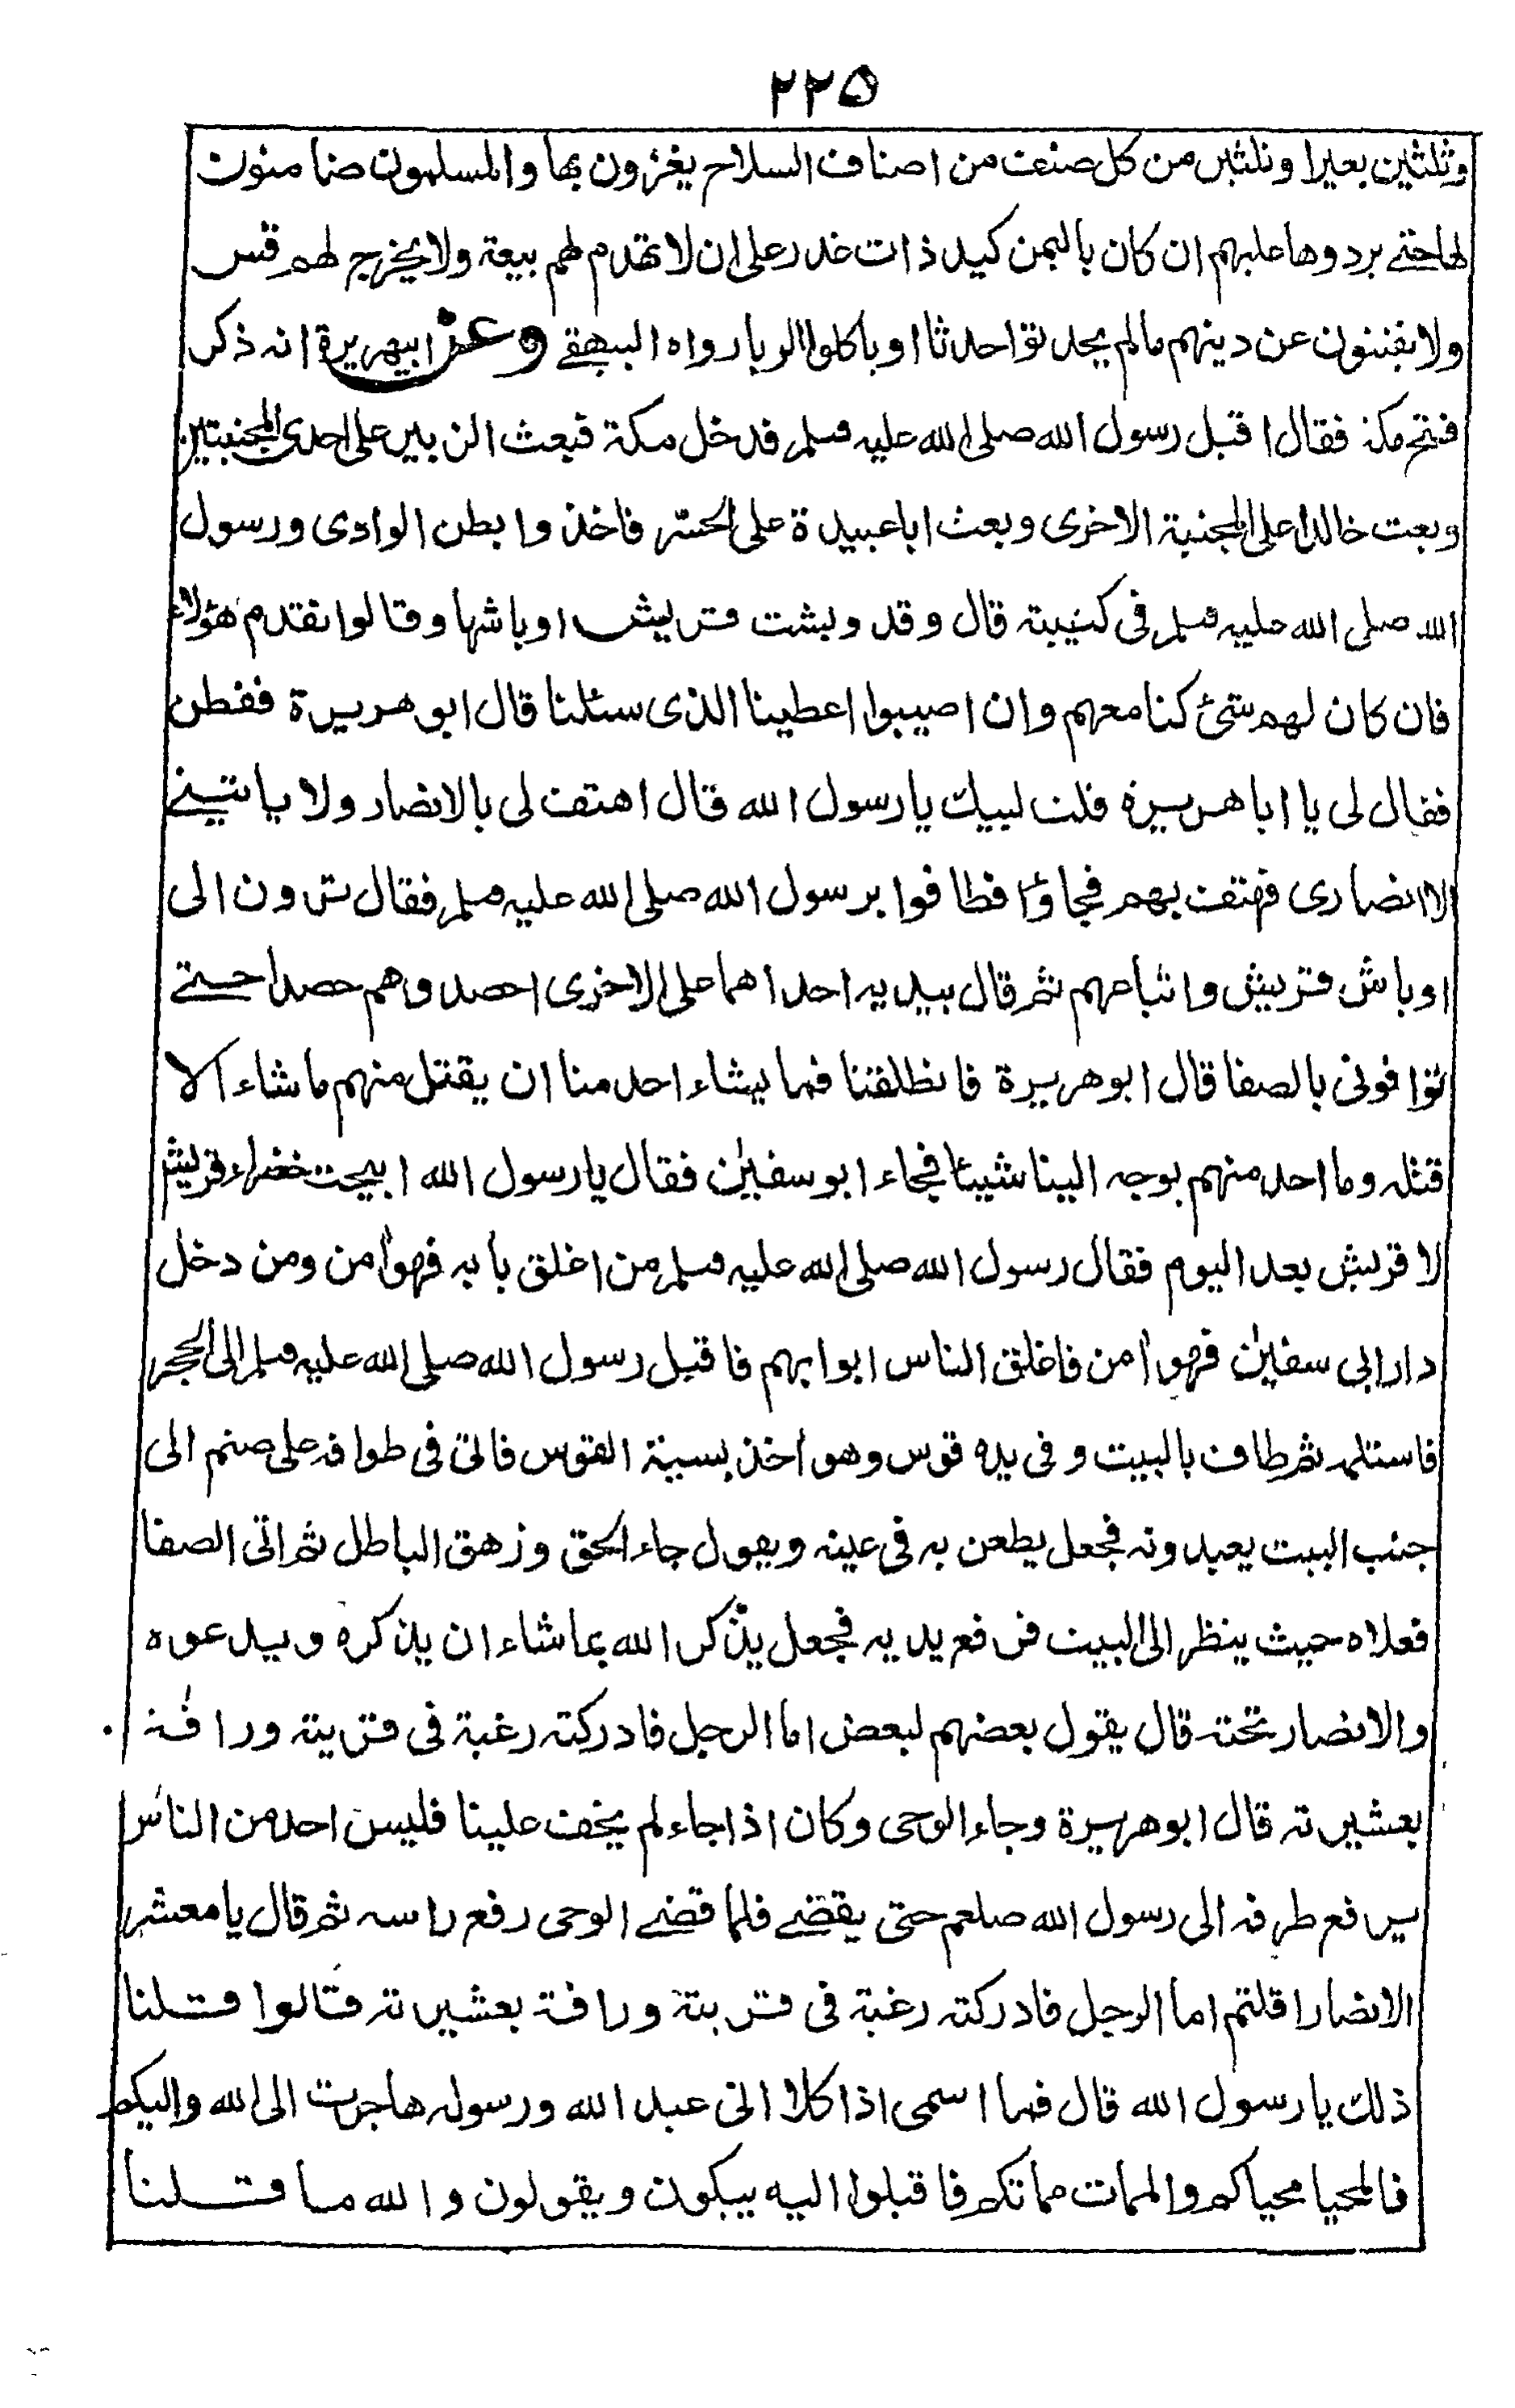 ٢٢٥
وثلثين بعيرا وثلثين من كل صنف من اصناف السلاح يغزون بها والمسلمون ضامنون
لها حتے يردوها عليهم ان كان باليمن كيد ذات غدر على ان لا تهدم لهم بيعة ولا يخرج لهم قس
ولا يفتنون عن دينهم ما لم يحدثوا حدثا او ياكلوا الربا رواه البيهقے وعن ابيهريرة انه ذكر
فتح مكة فقال اقبل رسول الله صلى الله عليه وسلم فدخل مكة فبعث الزبير على احدى المجنبتين
وبعث خالدا على المجنبة الاخرى وبعث ابا عبيدة على الحسّر فاخذوا بطن الوادى ورسول
الله صلى الله عليه وسلم فى كتيبته قال وقد وبشت قريش اوباشها وقالوا نقدم هؤلاء
فان كان لهم شئ كنا معهم وان اصيبوا اعطينا الذى سئلنا قال ابو هريرة ففطن
فقال لى يا ابا هريرة قلت لبيك يا رسول الله قال اهتف لى بالانصار ولا ياتينے
الا انصارى فهتف بهم فجاؤا فطافوا برسول الله صلى الله عليه وسلم فقال ترون الى
اوباش قريش واتباعهم ثم قال بيديه احداهما على الاخرى احصدوهم حصدا حتے
توافونى بالصفا قال ابو هريرة فانطلقنا فما يشاء احد منا ان يقتل منهم ما شاء الا
قتله وما احد منهم يوجه الينا شيئا فجاء ابو سفين فقال يا رسول الله ابيحت خضراء قريش
لا قريش بعد اليوم فقال رسول الله صلى الله عليه وسلم من اغلق بابه فهو اٰمن ومن دخل
دار ابى سفين فهو اٰمن فاغلق الناس ابوابهم فاقبل رسول الله صلى الله عليه وسلم الى الحجر
فاستلمه ثم طاف بالبيت وفى يده قوس وهو اٰخذ بسية القوس فاتى فى طوافه على صنم الى
جنب البيت يعبدونه فجعل يطعن به فى عينه ويقول جاء الحق وزهق الباطل ثم اتى الصفا
فعلاه حيث ينظر الى البيت فرفع يديه فجعل يذكر الله بما شاء ان يذكره ويدعوه
والانصار تحته قال يقول بعضهم لبعض اما الرجل فادركته رغبة فى قريته ورافة
بعشيرته قال ابو هريرة وجاء الوحى وكان اذا جاء لم يخف علينا فليس احد من الناس
يرفع طرفه الى رسول الله صلعم حتى يقضے فلما قضے الوحى رفع راسه ثم قال يا معشر
الانصار اقلتم اما الرجل فادركته رغبة فى قريته ورافة بعشيرته قالوا قلنا
ذلك يا رسول الله قال فما اسمى اذا كلا انى عبد الله ورسوله هاجرت الى الله واليكم
فالمحيا محياكم والممات مماتكم فاقبلوا اليه يبكون ويقولون والله ما قلنا